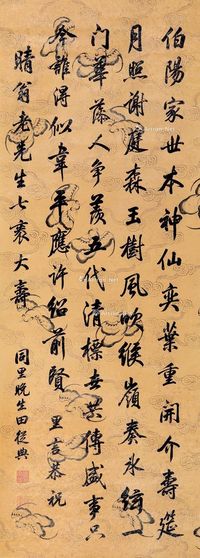 伯陽家世本神仙奕葉重開介壽筵
月照謝庭森玉樹風吹緱嶺奏冰絃一
門華萼人爭羨五代清標世共傳盛事只
今誰得似韋平應許紹前賢 里言恭祝
晴翁老先生七袠大壽
同里晚生田從典